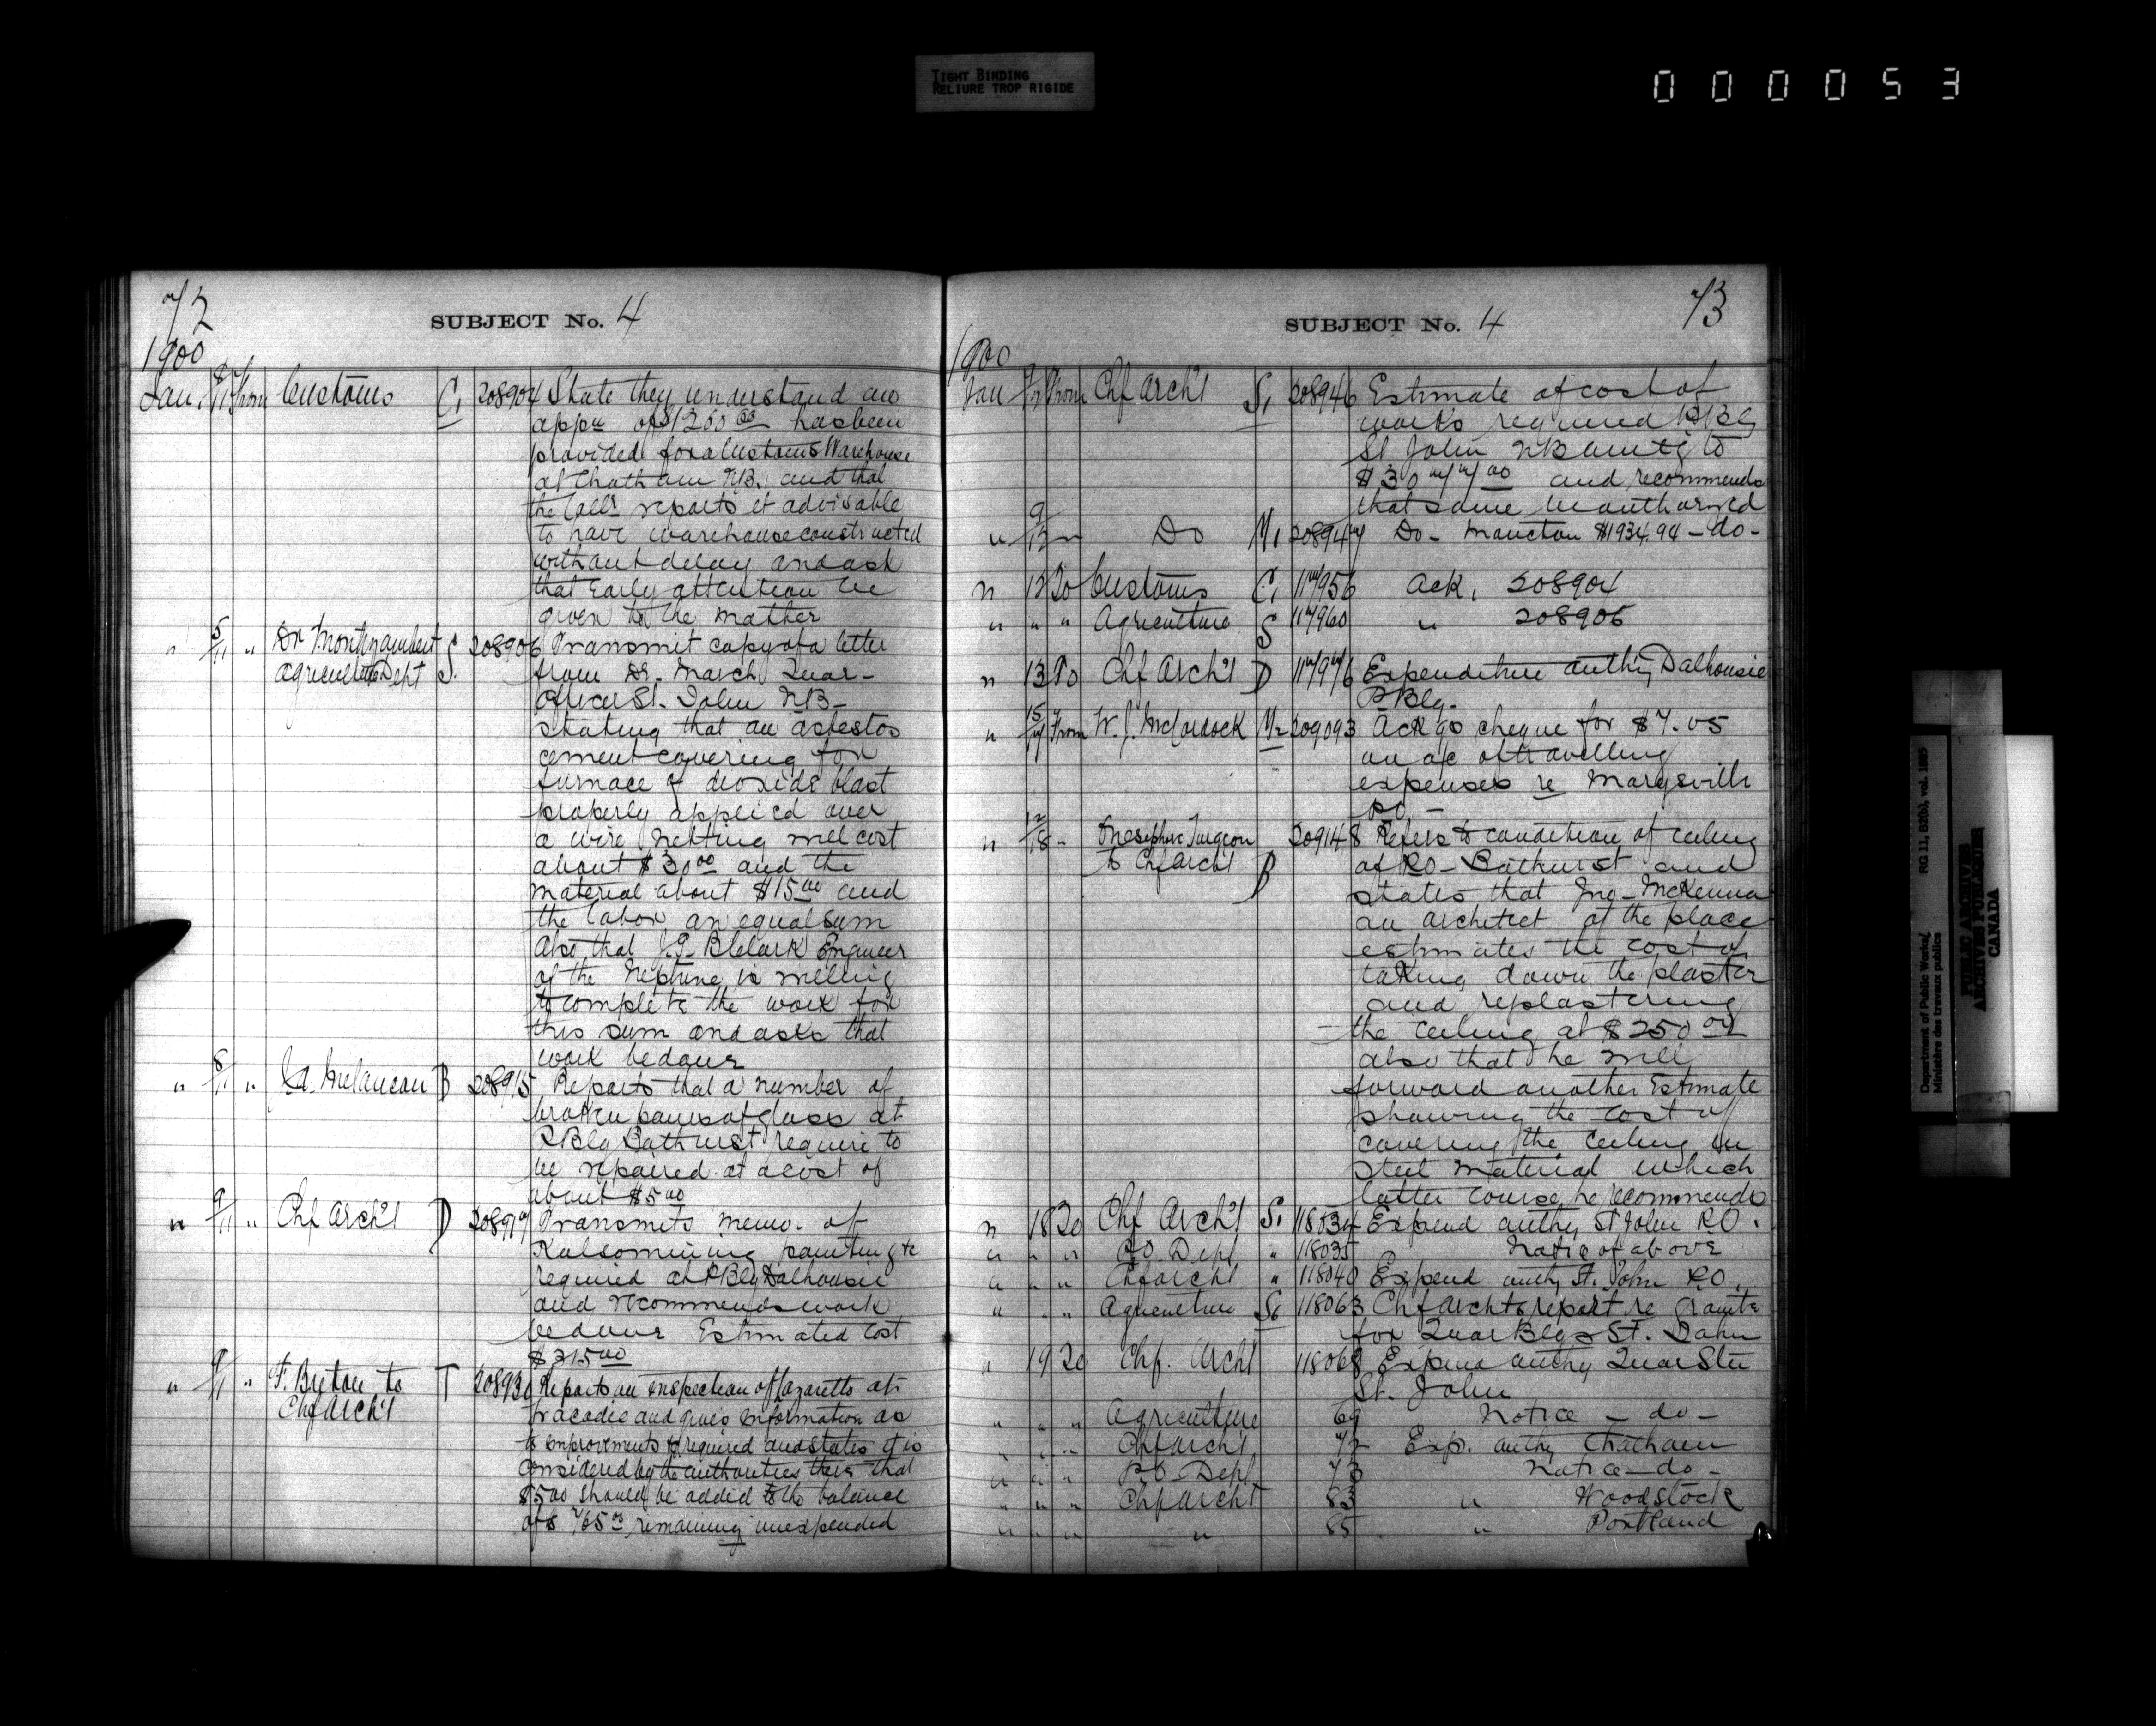 TIGHT BINDING
RELIURE TROP RIGIDE
000053
72
SUBJECT No. 4
1900
Jan. 8/11 From Customs C1 208904 State they understand an
appn of $1200 00 has been
provided for a Customs Warehouse
at Chatham N.B. and that
the Collr reports it advisable
to have warehouse constructed
without delay and ask
that early attention be
given to the matter
" 5/11 " Dr Montizambert S. 208906 Transmit copy of a letter
Agriculture Dept from Dr. March Quar-
Officer St. John N.B-
stating that an asbestos
cement covering for
furnace & dioxide blast
properly applied over
a wire netting will cost
about $30 00 and the
material about $15 00 and
the labor an equal sum
Also that Clark Engineer
of the Neptune is willing
to complete the work for
this sum and asks that
work be done
" 8/11 " Melancon B 208915 Reports that a number of
broken panes of glass at
PBlg Bathurst require to
be repaired at a cost of
about $5 00
" 9/11 " Chf Archt D 208917 Transmits memo. of
Kalsomining painting &c
required at PBlg Dalhousie
and recommends work
be done Estimated cost
$215 00
" 9/11 " F. Breton to T 20893 Reports on inspection of Lazaretto at
Chf Archt Tracadie and gives information as
to improvements required and states it is
considered by the authorities there that
$500 should be added to the balance
of $765 00 remaining unexpended
73
SUBJECT No. 4
1900
Jan 9/12 From Chf Archt S1 208946 Estimate of cost of
works required PBlg
St John NB amtg to
$3077 00 and recommends
that same be authorized
" 9/12 " Do M1 208947 Do - Moncton $1934.94 - do -
" 12 To Customs C1 117956 Ack. 208904
" " " Agriculture S 117960 " 208906
" 13 To Chf Archt D 117976 Expenditure authy Dalhousie
P Blg.
" 15/17 From W. J. McCordock M2 209093 Ack gs cheque for $7.05
on a/c of travelling
expenses re Marysville
PO -
" 12/18 " Onesiphore Turgeon 209148 Refers to condition of ceiling
to Chf Archt B at PO - Bathurst and
states that Jno - McKenna
an architect of the place
estimates the cost of
taking down the plaster
and replastering
- the ceiling at $250 00
also that he will
forward another Estimate
showing the cost of
covering the ceiling in
steel material which
latter course he recommends
" 18 To Chf Archt S1 118034 Expend authy St John PO.
" " " PO Dept " 118035 Notice of above
" " " Chf Archt " 118040 Expend authy St. John PO.
" " " Agriculture S6 118063 Chf Archts report re granite
for Quar Blgs St. John
" 19 To Chf. Archt 118068 Expend authy Quar Stn
St. John
" " " Agriculture 69 Notice - do -
" " " Chf Archt 72 Exp. authy Chatham
" " " P.O. Dept 73 Notice - do -
" " " Chf Archt 83 " Woodstock
" " " " 85 " Portland
Department of Public Works/ RG 11, B2(b), vol. 1985
Ministère des travaux publics
PUBLIC ARCHIVES
ARCHIVES PUBLIQUES
CANADA